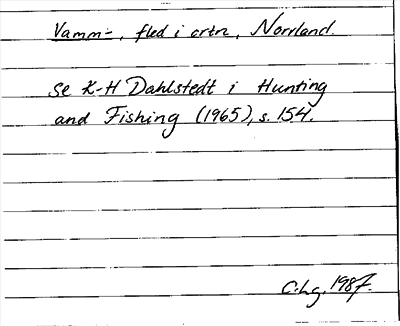 Vamm-, fled i ortn, Norrland.
Se K-H Dahlstedt i Hunting
and Fishing (1965), s. 154.
C.Lg. 1987.